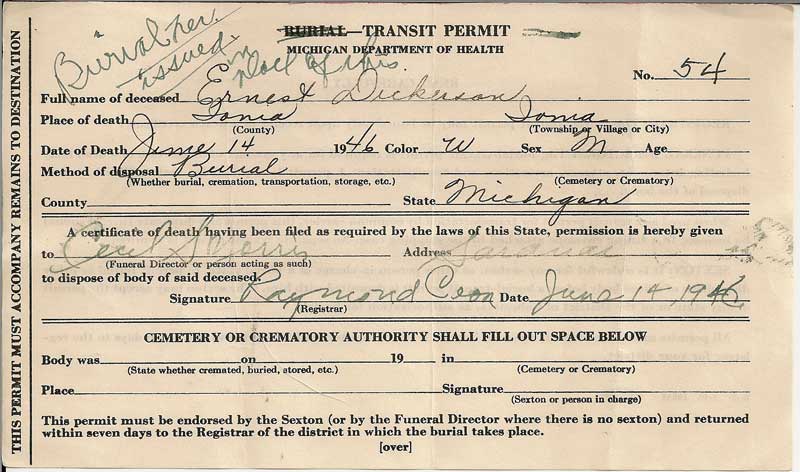 BURIAL—TRANSIT PERMIT
MICHIGAN DEPARTMENT OF HEALTH
Burial per.
issued in
place of this.
No. 54
Full name of deceased Ernest Dickerson
Place of death Ionia Ionia
(County) (Township or Village or City)
Date of Death June 14 1946 Color W Sex M Age
Method of disposal Burial
(Whether burial, cremation, transportation, storage, etc.) (Cemetery or Crematory)
County State Michigan
A certificate of death having been filed as required by the laws of this State, permission is hereby given
to Cecil Address
(Funeral Director or person acting as such)
to dispose of body of said deceased.
Signature Raymond Date June 14 1946
(Registrar)
CEMETERY OR CREMATORY AUTHORITY SHALL FILL OUT SPACE BELOW
Body was on 19 in
(State whether cremated, buried, stored, etc.) (Cemetery or Crematory)
Place Signature
(Sexton or person in charge)
This permit must be endorsed by the Sexton (or by the Funeral Director where there is no sexton) and returned
within seven days to the Registrar of the district in which the burial takes place.
[over]
THIS PERMIT MUST ACCOMPANY REMAINS TO DESTINATION